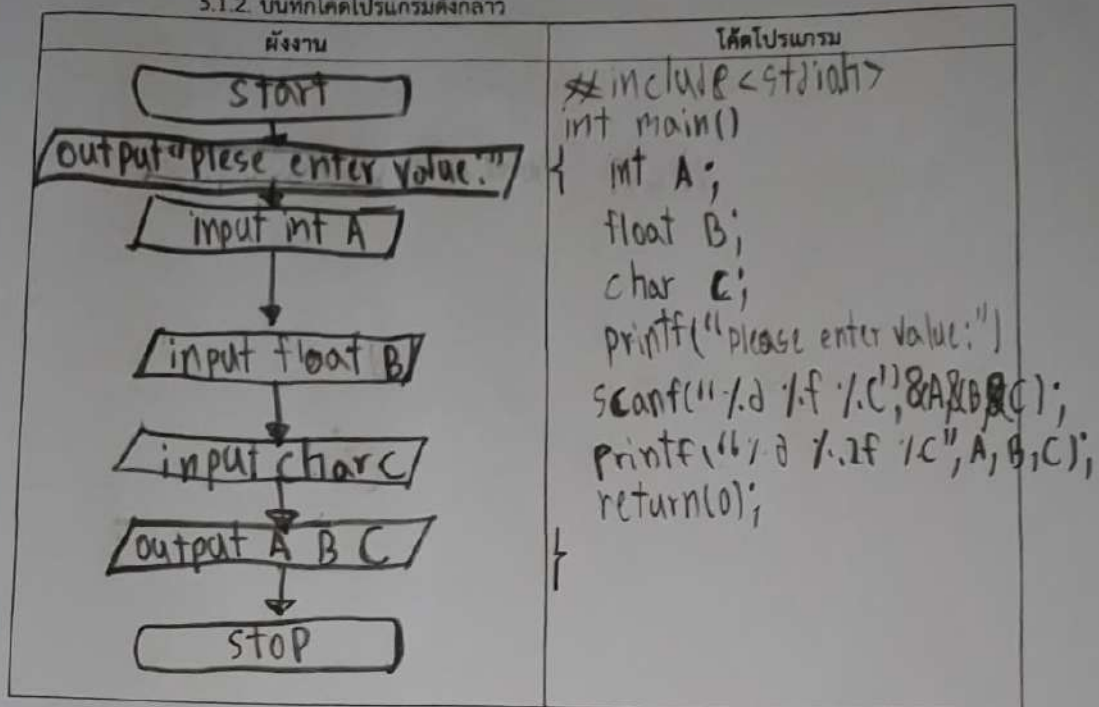 5.1.2. บันทึกโค้ดโปรแกรมดังกล่าว
ผังงาน
start
output"plese enter value:"
input int A
input float B
input char c
output A B C
stop
โค้ดโปรแกรม
#include <stdio.h>
int main()
{ int A;
float B;
char C;
printf("please enter value:")
scanf("%d %f %c",&A,&B,&C);
printf("%d %.2f %c", A, B, C);
return(0);
}